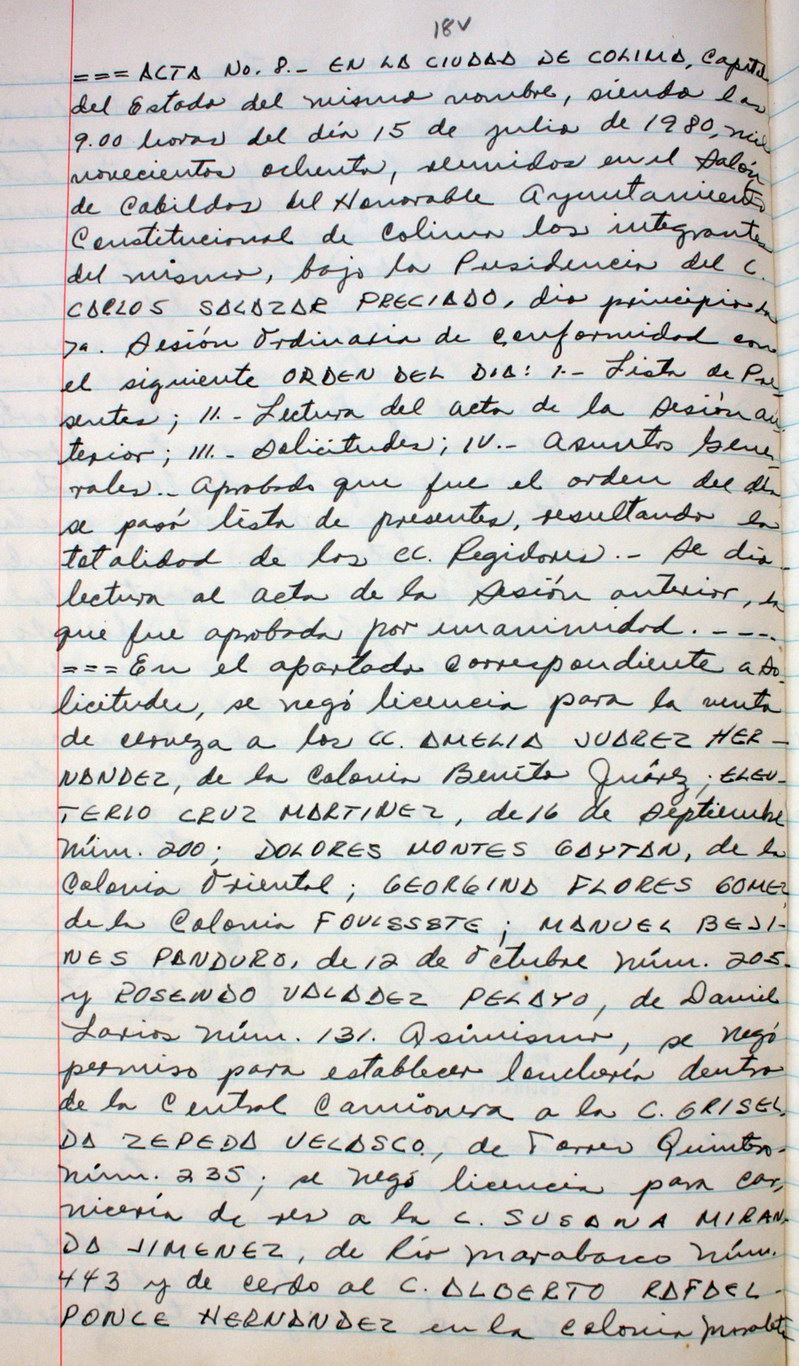 18v
=== ACTA No. 8.- EN LA CIUDAD DE COLIMA, Capital
del Estado del mismo nombre, siendo las
9.00 horas del día 15 de julio de 1980, mil
novecientos ochenta, reunidos en el Salón
de Cabildos del Honorable Ayuntamiento
Constitucional de Colima los integrantes
del mismo, bajo la Presidencia del C.
CARLOS SALAZAR PRECIADO, dio principio la
7a. Sesión Ordinaria de conformidad con
el siguiente ORDEN DEL DIA: I.- Lista de Pre-
sentes; II.- Lectura del acta de la Sesión an-
terior; III.- Solicitudes; IV.- Asuntos Gene-
rales.- Aprobado que fue el orden del día
se pasó lista de presentes, resultando la
totalidad de los CC. Regidores.- Se dio
lectura al acta de la Sesión anterior, la
que fue aprobada por unanimidad. - - - -
=== En el apartado correspondiente a So-
licitudes, se negó licencia para la venta
de cerveza a los CC. AMELIA JUAREZ HER-
NANDEZ, de la Colonia Benito Juárez; ELEU-
TERIO CRUZ MARTINEZ, de 16 de Septiembre
Núm. 200; DOLORES MONTES GAYTAN, de la
Colonia Oriental; GEORGINA FLORES GOMEZ
de la Colonia FOVISSSTE; MANUEL BEJI-
NES PANDURO, de 12 de Octubre Núm. 205-
y ROSENDO VALADEZ PELAYO, de Daniel
Larios Núm. 131. Asimismo, se negó
permiso para establecer lonchería dentro
de la Central Camionera a la C. GRISEL-
DA ZEPEDA VELASCO, de Torres Quintero-
Núm. 235; se negó licencia para car-
nicería de res a la C. SUSANA MIRAN-
DA JIMENEZ, de Río Marabasco Núm.
443 y de cerdo al C. ALBERTO RAFAEL-
PONCE HERNANDEZ en la Colonia